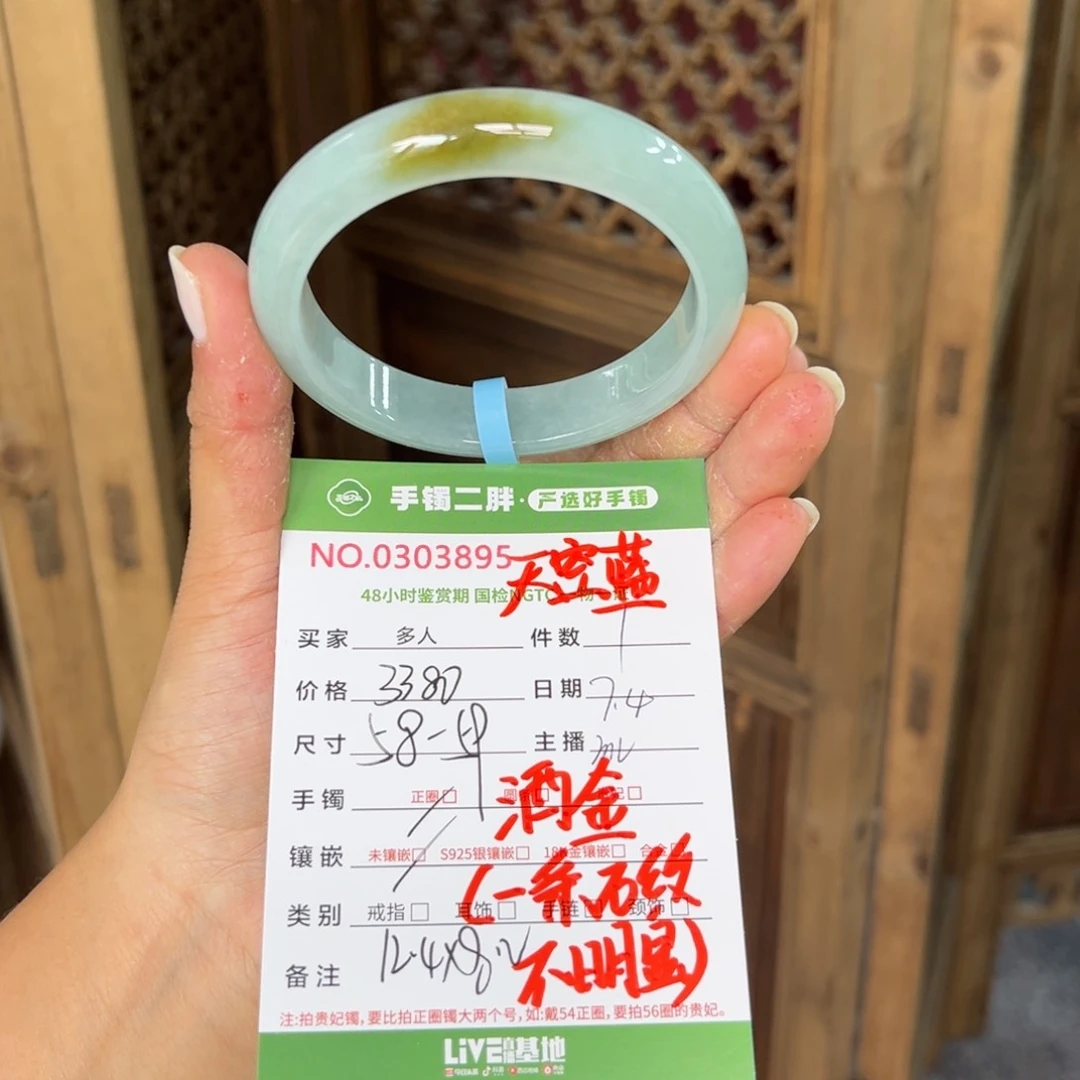 手镯二胖·严选好手镯
NO.0303895
天空蓝
48小时鉴赏期 国检NGTC一物一证
买家 多人 件数 1
价格 3380 日期 7.4
尺寸 58-
主播
手镯 正圈□
洒金
镶嵌 未镶嵌□ S925银镶嵌□ 18K金镶嵌□ 合金□
(一条石纹
类别 戒指□ 耳饰□ 手链□ 颈饰□
不明显)
备注 12.4×8.2
注:拍贵妃镯,要比拍正圈镯大两个号,如:戴54正圈,要拍56圈的贵妃。
LIVE直播基地